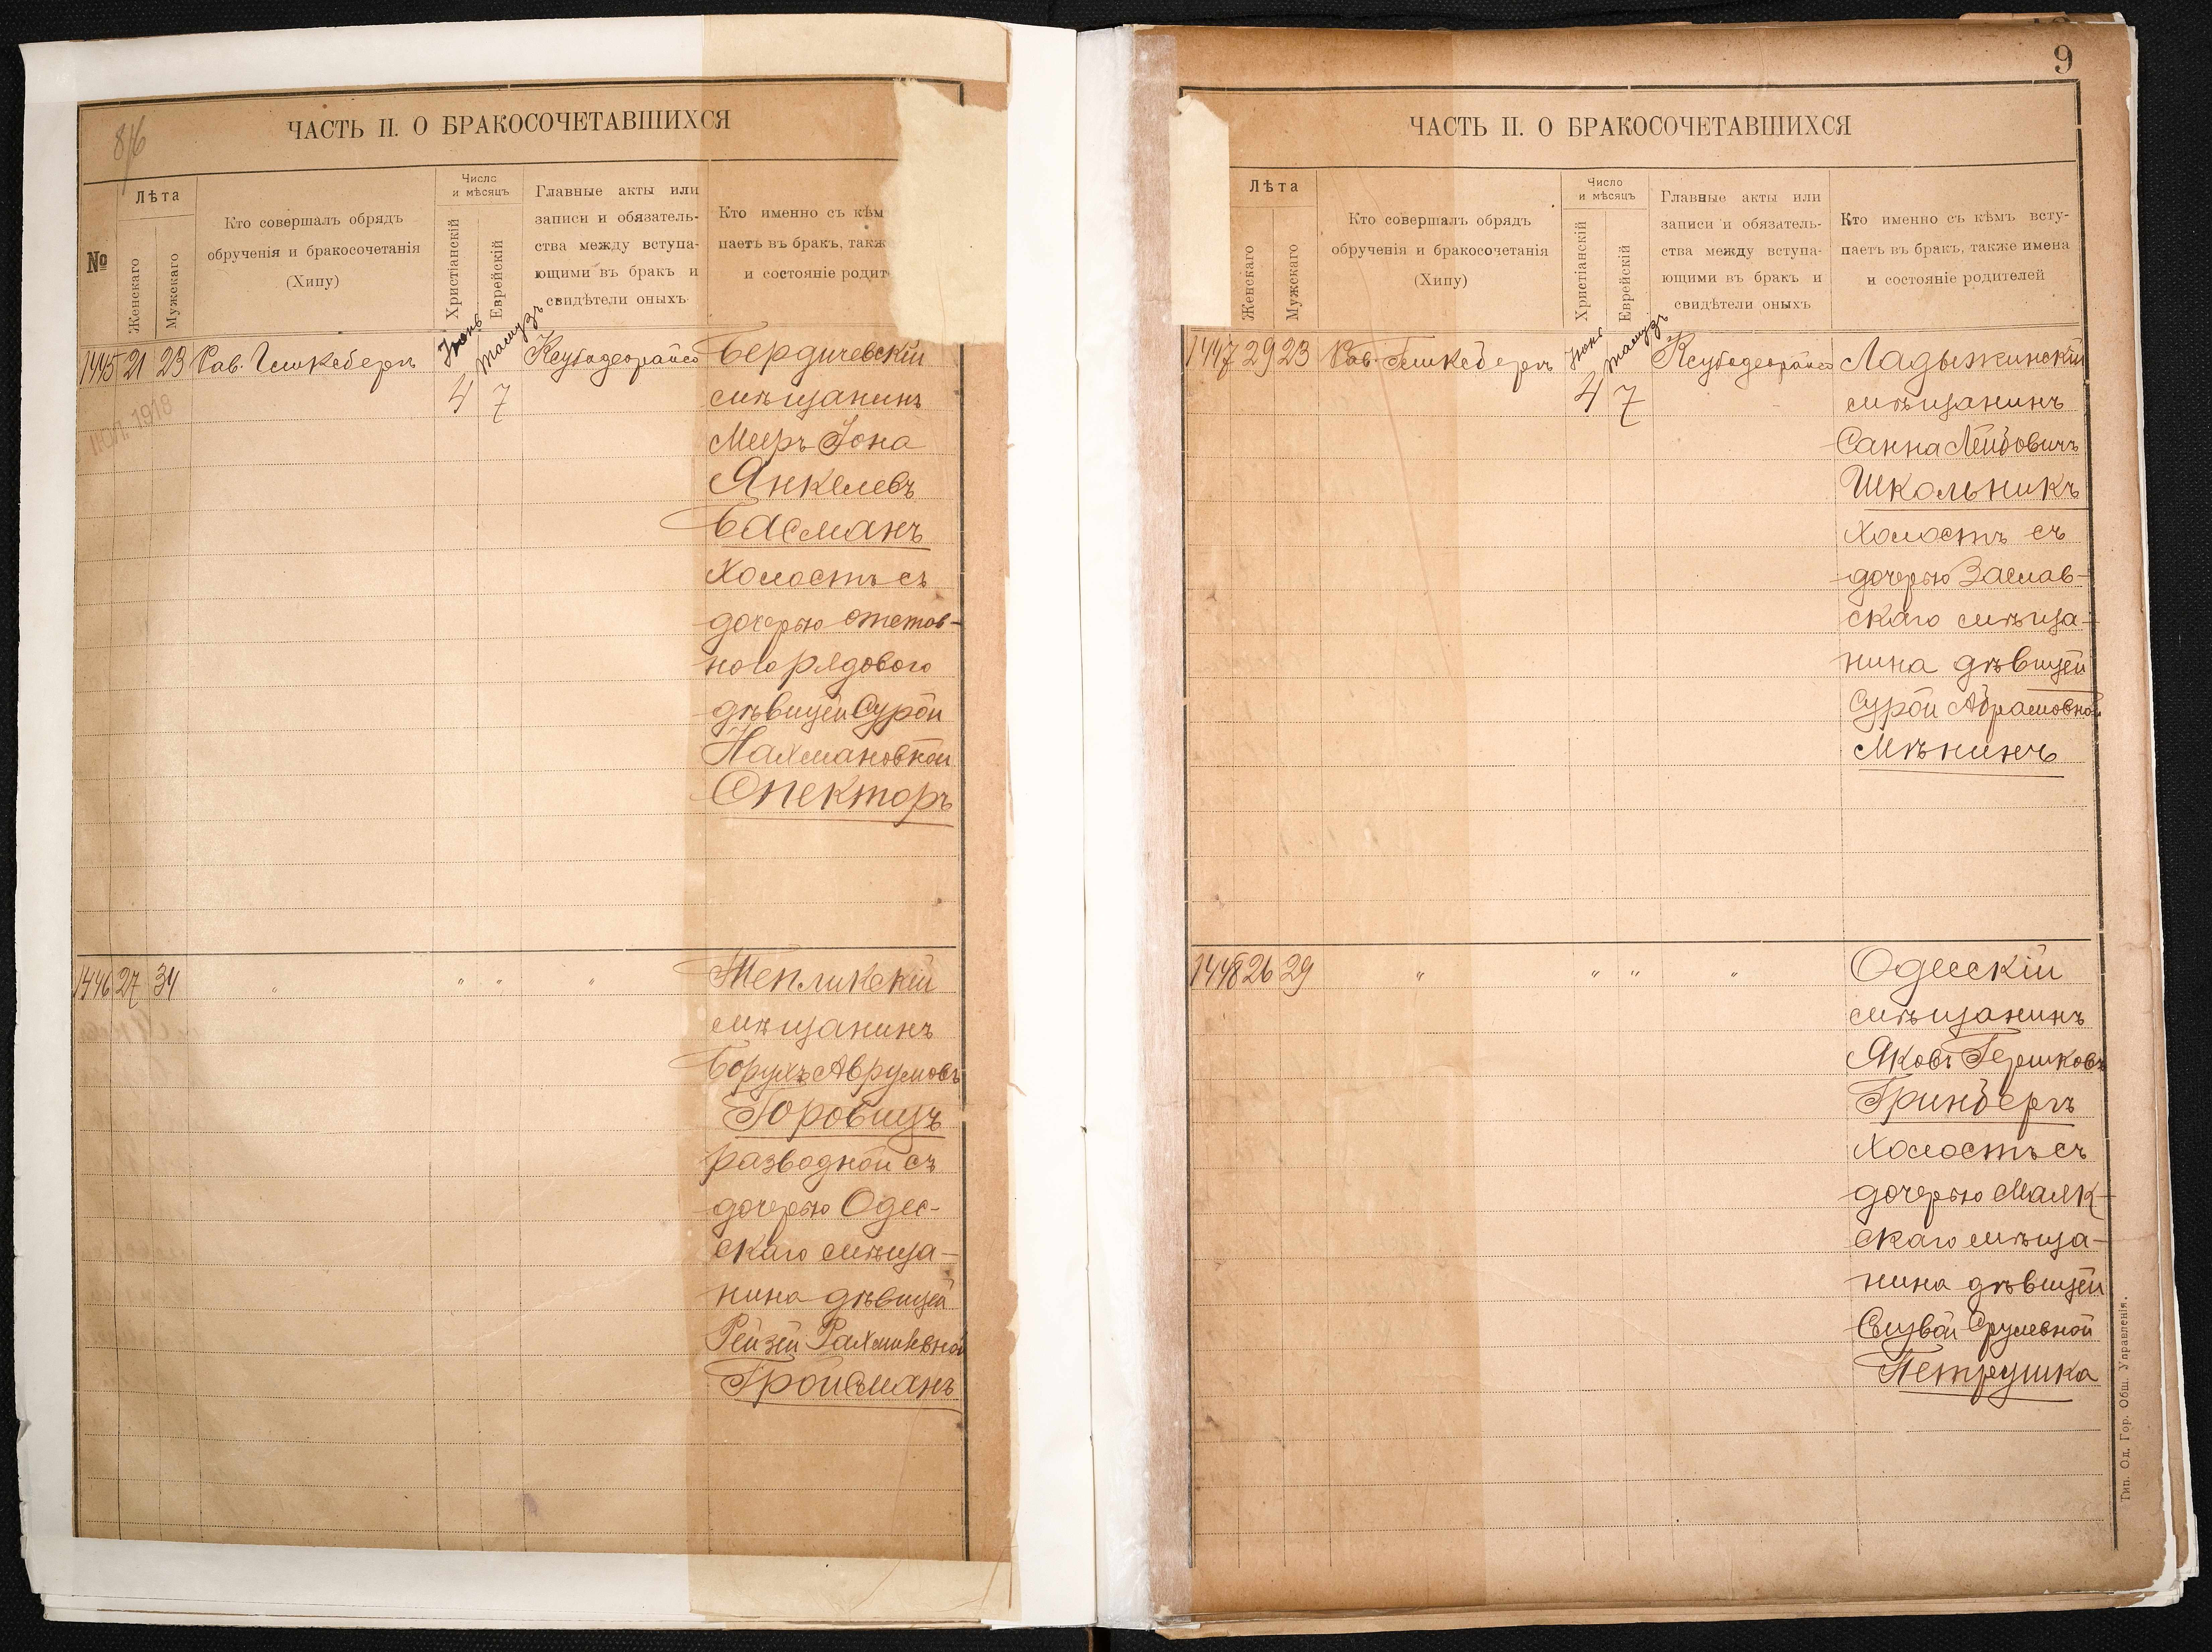 8/6
ЧАСТЬ II. О БРАКОСОЧЕТАВШИХСЯ
№
Лѣта
Женскаго
Мужскаго
Кто совершалъ обрядъ
обрученія и бракосочетанія
(Хипу)
Число
и мѣсяцъ
Христіанскій
Еврейскій
Главные акты или
записи и обязатель-
ства между вступа-
ющими въ бракъ и
свидѣтели оныхъ
Кто именно съ кѣм
паетъ въ бракъ, такж
и состояніе родит
1445 21 23 Рав.
Іюнь 4
Тамузъ 7
Бердичевскій
мѣщанинъ
Мееръ Іона
Янкелевъ
Басманъ
холостъ съ
дочерью отстав-
ного рядового
дѣвицей Сурой
Нахмановной
Спекторъ
ІЮЛ. 1918
1446 27 34 " " " "
Тепликскій
мѣщанинъ
Борухъ Аврумовъ
Юровицъ
разводной съ
дочерью Одес-
скаго мѣща-
нина дѣвицей
Рейзей Рахмилевной
Гройсманъ
9
ЧАСТЬ II. О БРАКОСОЧЕТАВШИХСЯ
Лѣта
Женскаго
Мужскаго
Кто совершалъ обрядъ
обрученія и бракосочетанія
(Хипу)
Число
и мѣсяцъ
Христіанскій
Еврейскій
Главные акты или
записи и обязатель-
ства между вступа-
ющими въ бракъ и
свидѣтели оныхъ
Кто именно съ кѣмъ всту-
паетъ въ бракъ, также имена
и состояніе родителей
1447 29 23 Рав.
Іюнь 4
Тамузъ 7
Ладыжинскій
мѣщанинъ
Санна Лейбовичъ
Школьникъ
холостъ съ
дочерью Заслав-
скаго мѣща-
нина дѣвицей
Сурой Абрамовной
1448 26 29 " " " "
Одесскій
мѣщанинъ
Яковъ Гершковъ
Гринбергъ
холостъ съ
дочерью
скаго мѣща-
нина дѣвицей
Срулевной
Петрушка
Тип. Од. Гор. Общ. Управленія.